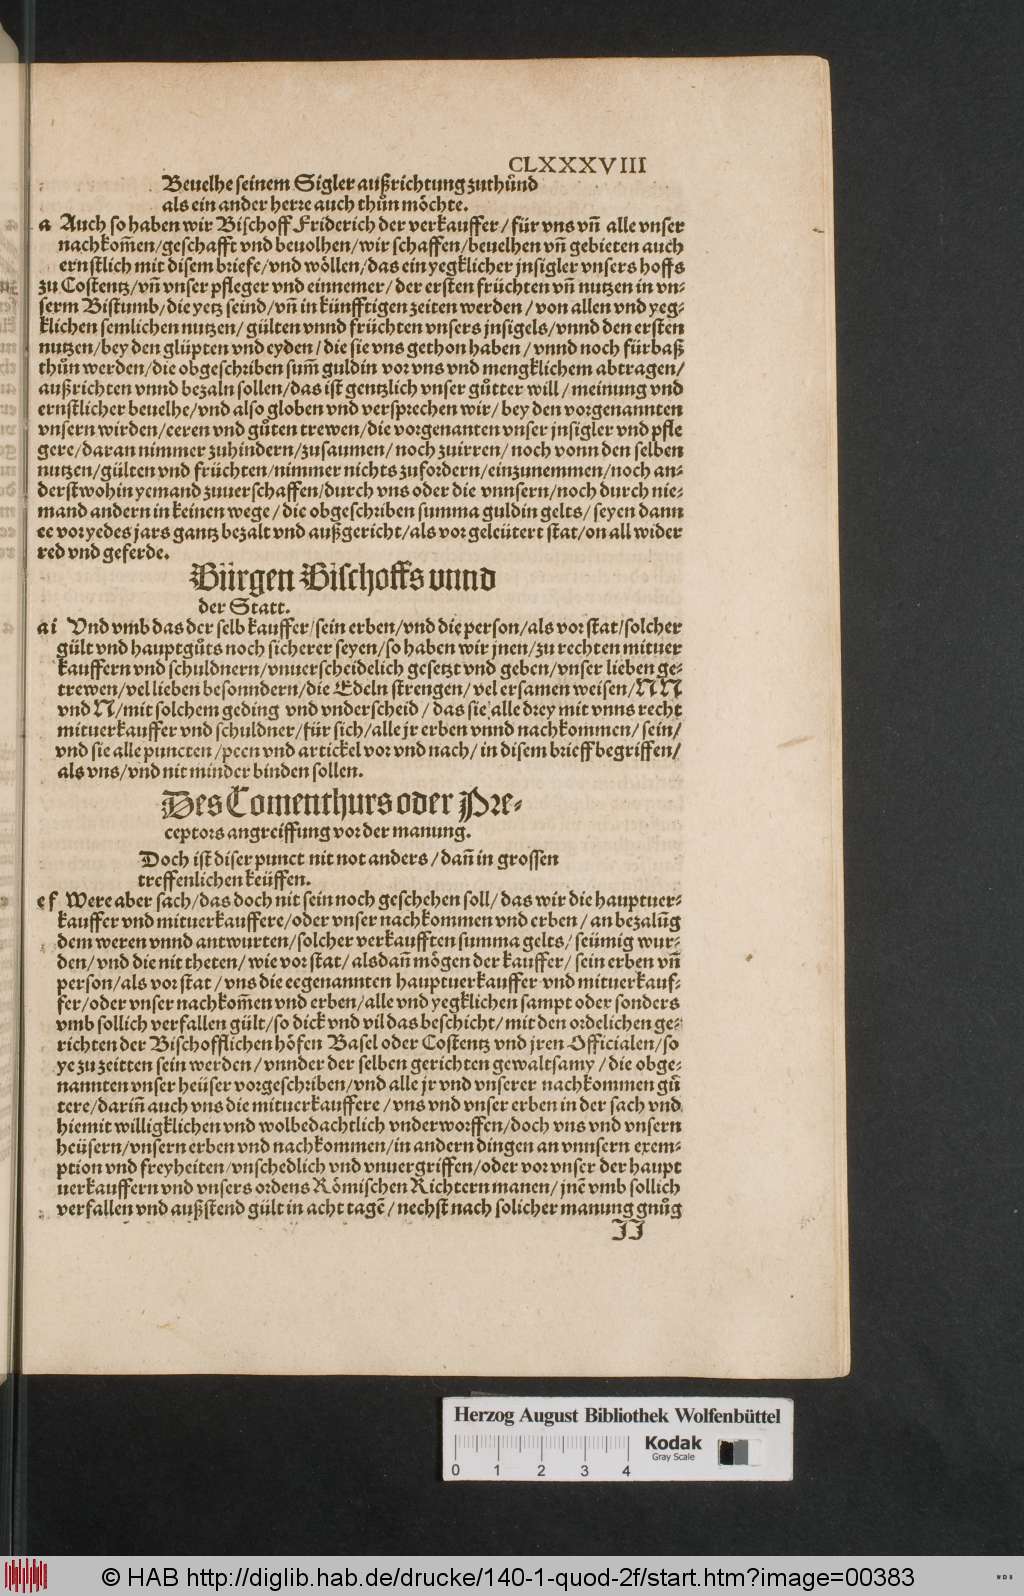 CLXXXVIII
Beuelhe seinem Sigler außrichtung zuthůnd
als ein ander herre auch thůn möchte.
a Auch so haben wir Bischoff Friderich der verkauffer / für vns vñ alle vnser
nachkom̃en/geschafft vnd beuolhen/wir schaffen/beuelhen vñ gebieten auch
ernstlich mit disem briefe/vnd wöllen/das ein yegklicher jnsigler vnsers hoffs
zu Costentz/vñ vnser pfleger vnd einnemer/ der ersten früchten vñ nutzen in vn-
serm Bistumb/die yetz seind/vñ in künfftigen zeiten werden / von allen vnd yeg-
klichen semlichen nutzen/ gülten vnnd früchten vnsers jnsigels/vnnd den ersten
nutzen/bey den glüpten vnd eyden / die sie vns gethon haben / vnnd noch fürbaß
thůn werden/die obgeschriben sum̃ guldin vor vns vnd mengklichem abtragen/
außrichten vnnd bezaln sollen/das ist gentzlich vnser gůtter will / meinung vnd
ernstlicher beuelhe/vnd also globen vnd versprechen wir / bey den vorgenannten
vnsern wirden/eeren vnd gůten trewen/die vorgenanten vnser jnsigler vnd pfle
gere/daran nimmer zuhindern/zusaumen/ noch zuirren/ noch vonn den selben
nutzen/gülten vnd früchten/nimmer nichts zufordern/einzunemmen/noch an-
derstwohin yemand zuuerschaffen/durch vns oder die vnnsern/noch durch nie-
mand andern in keinen wege / die obgeschriben summa guldin gelts/ seyen dann
ee vor yedes jars gantz bezalt vnd außgericht/als vor geleütert stat/on all wider
red vnd geferde.
Bürgen Bischoffs vnnd
der Statt.
ai Vnd vmb das der selb kauffer/sein erben/vnd die person/als vor stat/solcher
gült vnd hauptgůts noch sicherer seyen/so haben wir jnen/zu rechten mituer
kauffern vnd schuldnern/vnuerscheidelich gesetzt vnd geben/vnser lieben ge-
trewen/vel lieben besonndern/die Edeln strengen/ vel ersamen weisen/N N
vnd N/mit solchem geding vnd vnderscheid / das sie alle drey mit vnns recht
mituerkauffer vnd schuldner/für sich/alle jr erben vnnd nachkommen/ sein/
vnd sie alle puncten /peen vnd artickel vor vnd nach/ in disem brieff begriffen/
als vns/vnd nit minder binden sollen.
Des Comenthurs oder Pre-
ceptors angreiffung vor der manung.
Doch ist diser punct nit not anders / dañ in grossen
treffenlichen keüffen.
ef Were aber sach/das doch nit sein noch geschehen soll/das wir die hauptuer-
kauffer vnd mituerkauffere/oder vnser nachkommen vnd erben / an bezalũg
dem weren vnnd antwurten/solcher verkaufften summa gelts/ seümig wur-
den/vnd die nit theten/ wie vor stat/ alsdañ mögen der kauffer/ sein erben vñ
person/als vor stat /vns die eegenannten hauptuerkauffer vnd mituerkauf-
fer/oder vnser nachkom̃en vnd erben/alle vnd yegklichen sampt oder sonders
vmb sollich verfallen gült/so dick vnd vil das beschicht/ mit den ordelichen ge-
richten der Bischofflichen höfen Basel oder Costentz vnd jren Officialen/so
ye zu zeitten sein werden /vnnder der selben gerichten gewaltsamy / die obge-
nannten vnser heüser vorgeschriben/vnd alle jr vnd vnserer nachkommen gů
tere/dariñ auch vns die mituerkauffere / vns vnd vnser erben in der sach vnd
hiemit willigklichen vnd wolbedachtlich vnderworffen/doch vns vnd vnsern
heüsern/vnsern erben vnd nachkommen/in andern dingen an vnnsern exem-
ption vnd freyheiten/vnschedlich vnd vnuergriffen/oder vor vnser der haupt
uerkauffern vnd vnsers ordens Römischen Richtern manen/ jnẽ vmb sollich
verfallen vnd außstend gült in acht tagẽ / nechst nach solicher manung gnůg
JJ
Herzog August Bibliothek Wolfenbüttel
Kodak
Gray Scale
0 1 2 3 4
© HAB http://diglib.hab.de/drucke/140-1-quod-2f/start.htm?image=00383